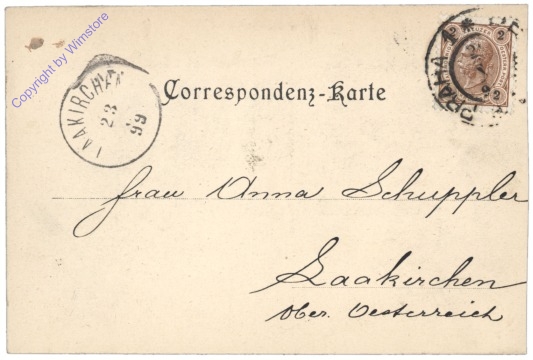 Copyright by Wimstore
2 2
PRAHA 1 *
LAAKIRCHEN
23
99
Correspondenz-Karte
Frau Anna Schuppler
Laakirchen
Ober. Oesterreich